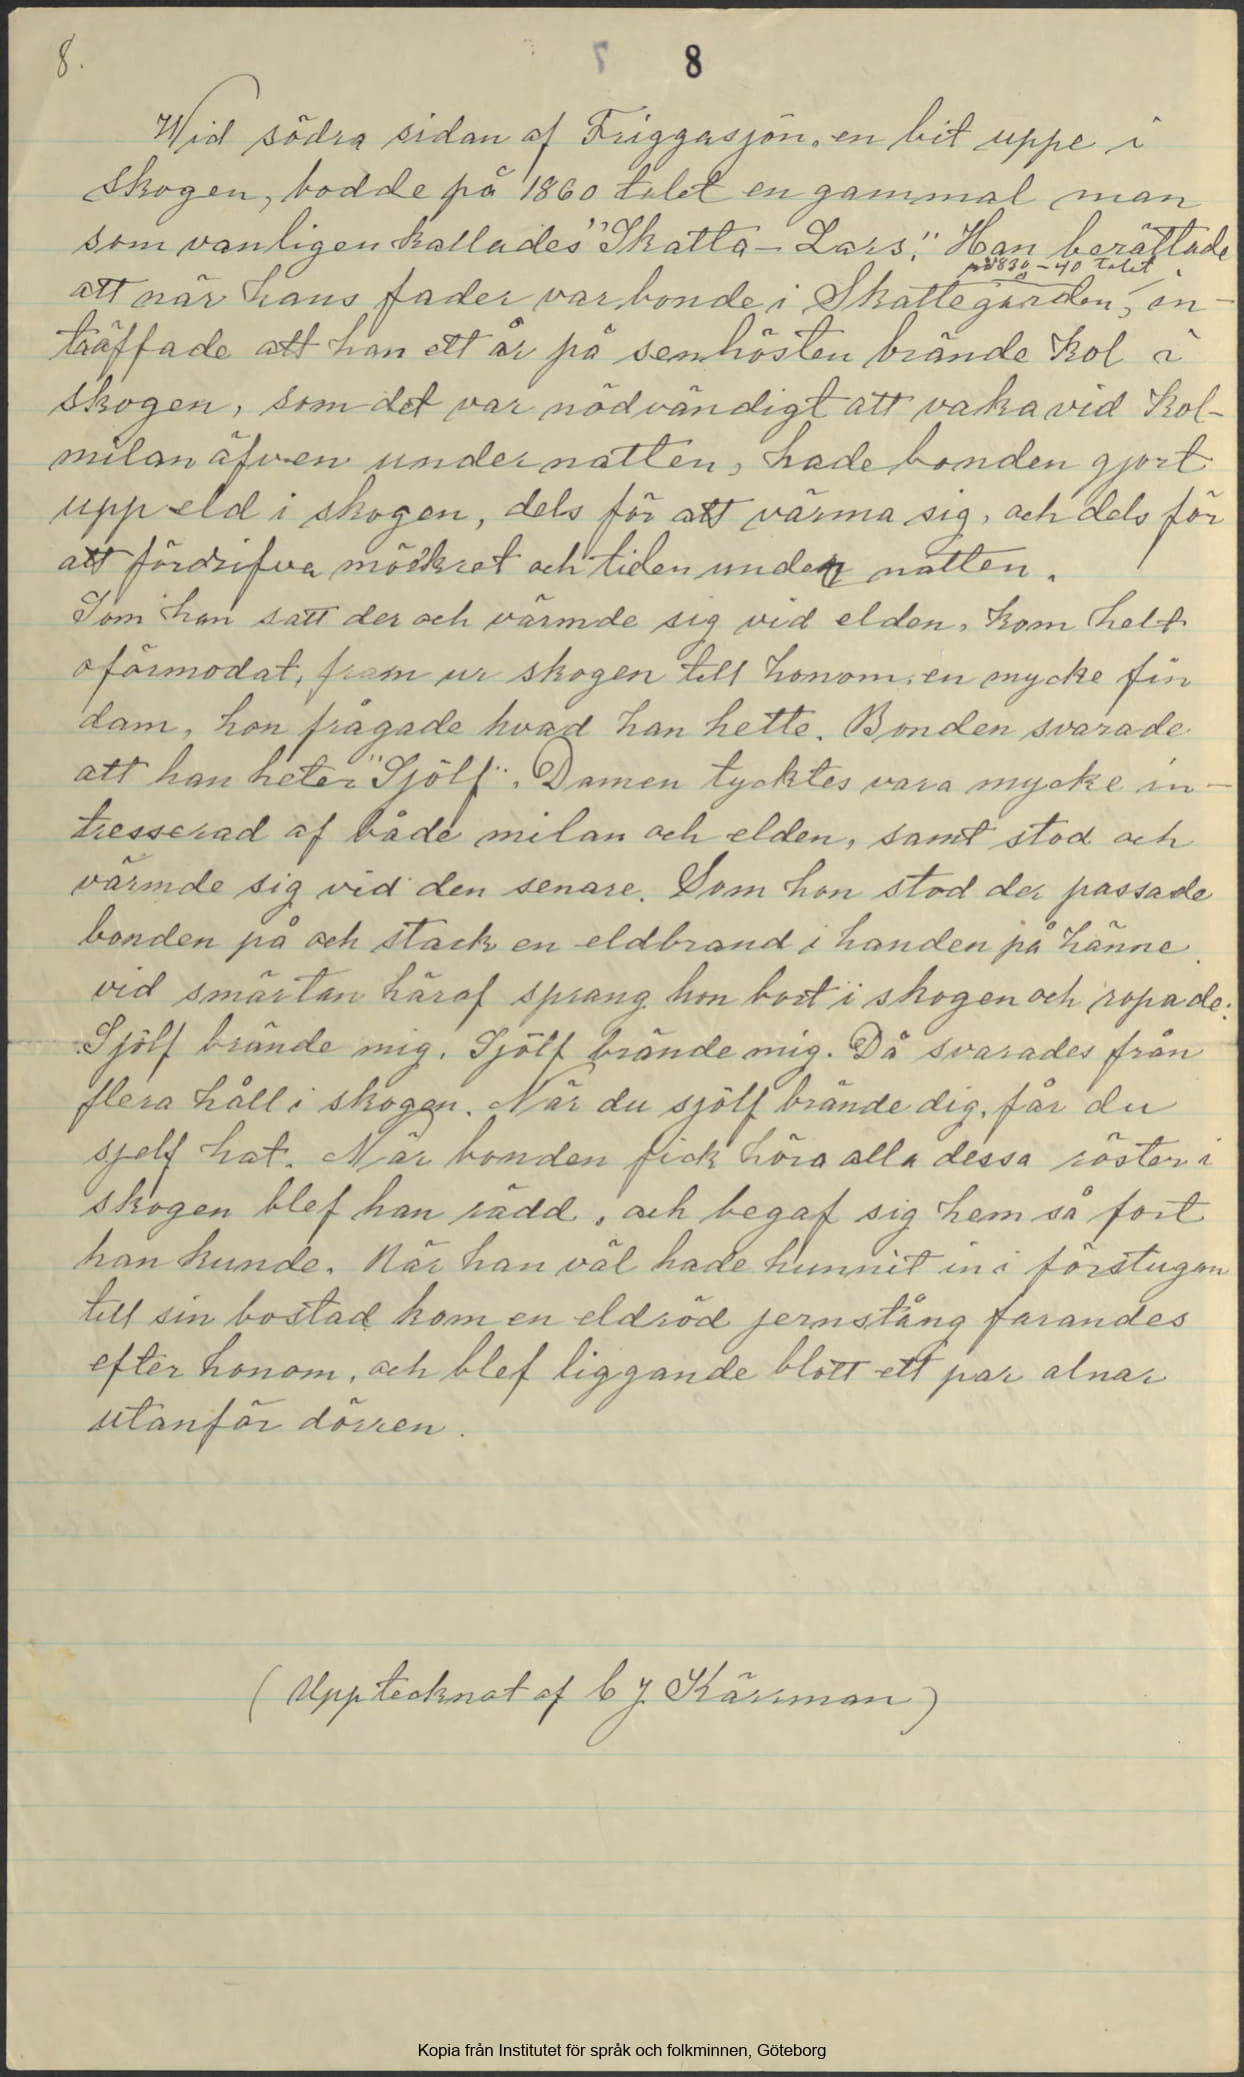 8.
8
Wid södra sidan af Friggasjön, en bit uppe i
skogen, bodde på 1860 talet en gammal man
som vanligen kallades "Skatta-Lars". Han berättade
på 1830-40 talet
att när hans fader var bonde i Skattegården, in-
träffade att han ett år på senhösten brände kol i
skogen, som det var nödvändigt att vaka vid kol-
milan äfven under natten, hade bonden gjort
upp eld i skogen, dels för att värma sig, och dels för
att fördrifva mörkret och tiden under natten.
Som han satt der och värmde sig vid elden, kom helt
oförmodat, fram ur skogen till honom, en mycke fin
dam, hon frågade hvad han hette. Bonden svarade
att han heter "Sjölf". Damen tycktes vara mycke in-
tresserad af både milan och elden, samt stod och
värmde sig vid den senare. Som hon stod der passade
bonden på och stack en eldbrand i handen på hänne.
vid smärtan häraf sprang hon bort i skogen och ropade:
Sjölf brände mig. Sjölf brände mig. Då svarades från
flera håll i skogen. När du sjölf brände dig, får du
sjelf hat. När bonden fick höra alla dessa röster i
skogen blef han rädd, och begaf sig hem så fort
han kunde. När han väl hade hunnit in i förstugan
till sin bostad kom en eldröd jernstång farandes
efter honom, och blef liggande blott ett par alnar
utanför dörren.
(Upptecknat af C J. Kärrman)
Kopia från Institutet för språk och folkminnen, Göteborg